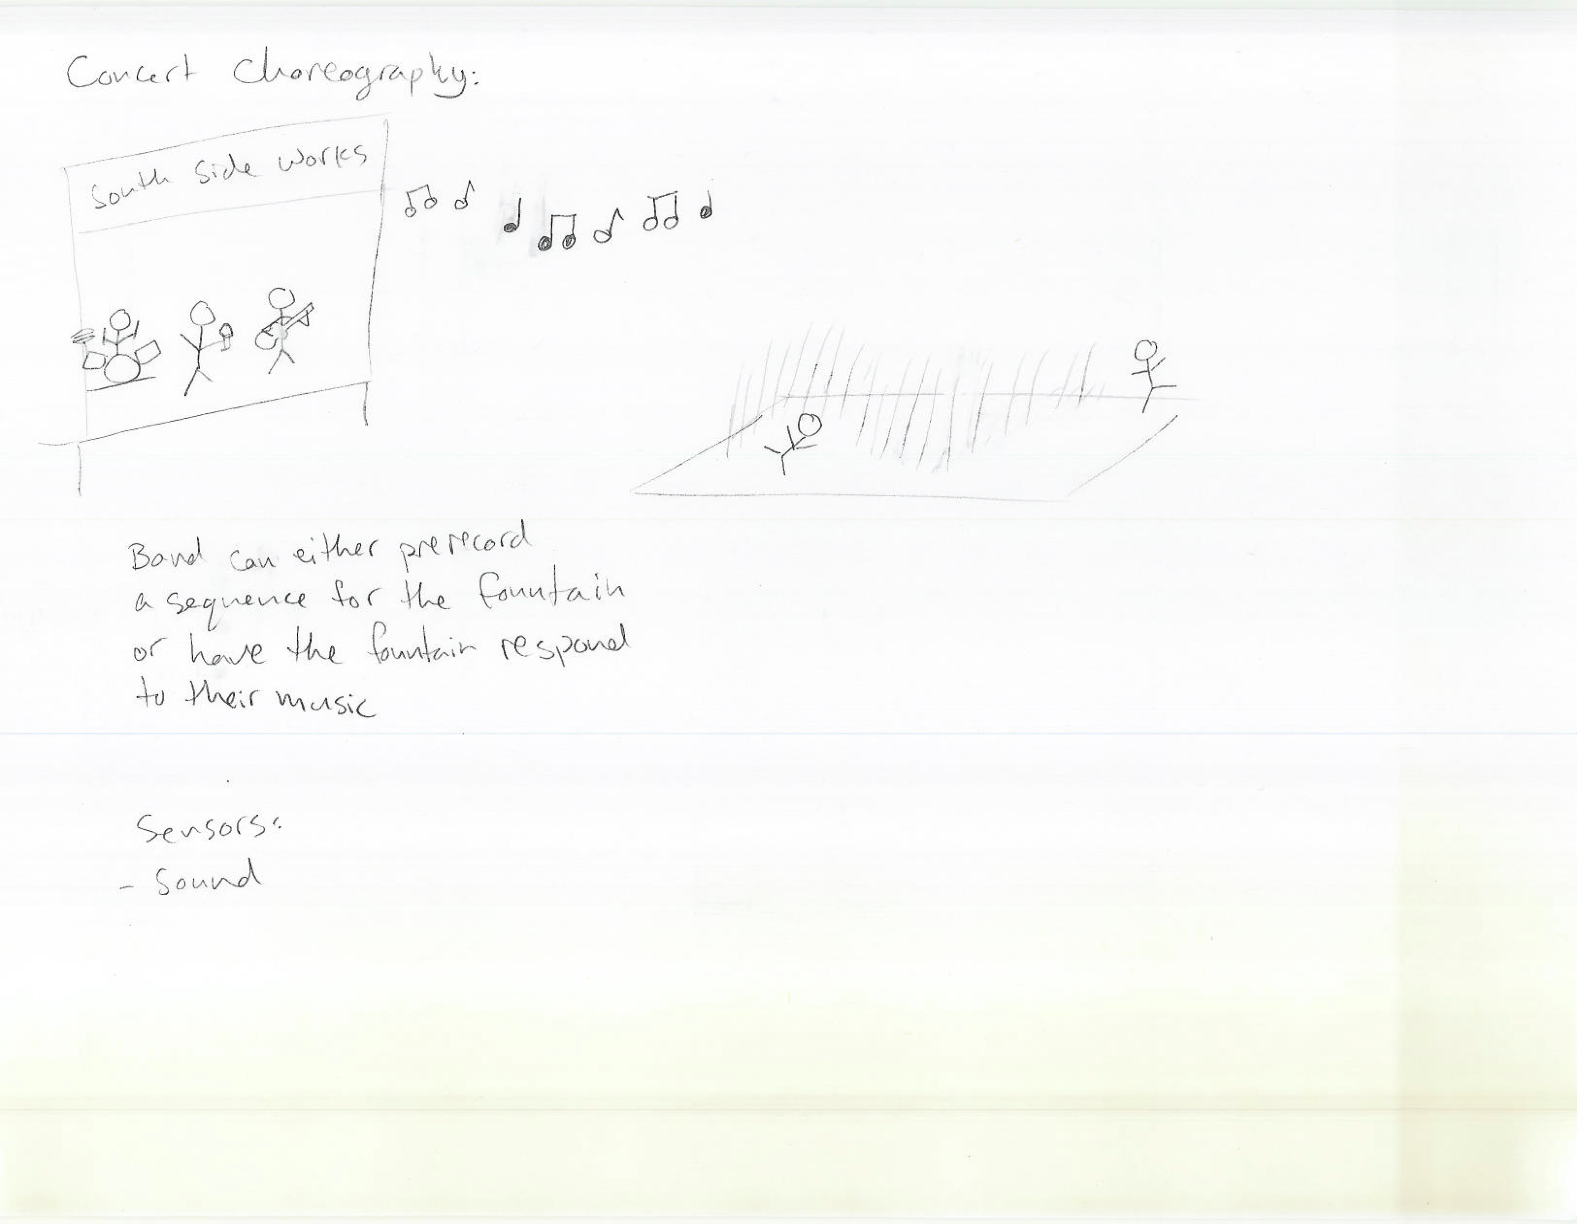 Concert Choreography:
South Side Works
Band can either prerecord
a sequence for the fountain
or have the fountain respond
to their music
Sensors:
- Sound